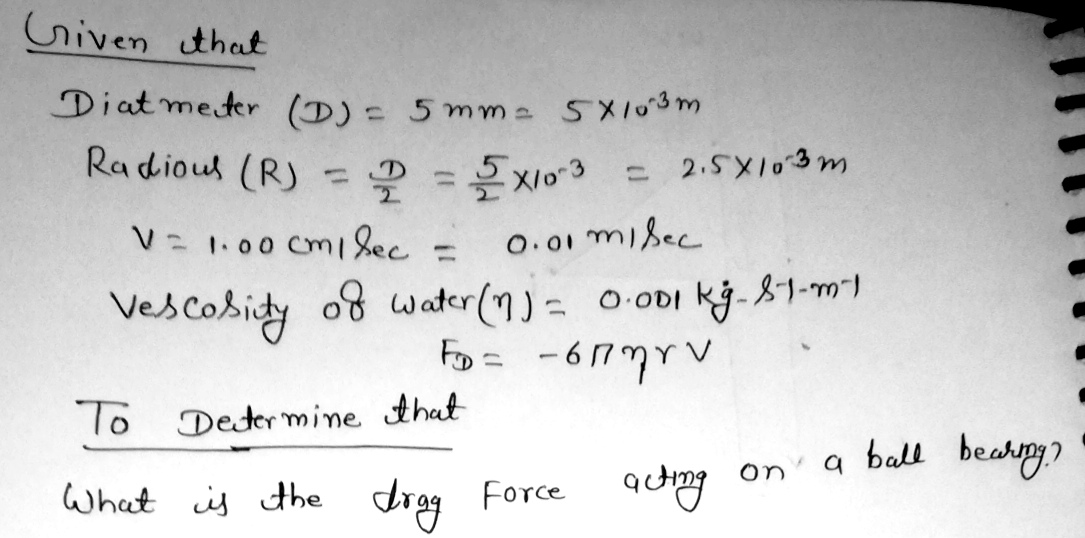 Given that
Diatmeter (D) = 5 mm = 5 X 10-3 m
Radious (R) = D/2 = 5/2 X10-3 = 2.5 X 10-3 m
V = 1.00 cm/Sec = 0.01 m/Sec
Vescosity of water (η) = 0.001 kg-S-1-m-1
FD = -6πηrV
To Determine that
What is the drag Force acting on a ball bearing?